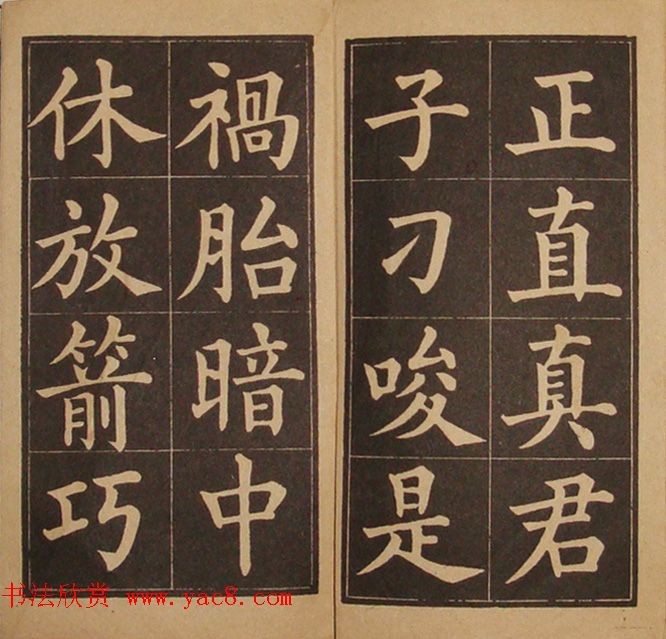 正直真君
子刁唆是
禍胎暗中
休放箭巧
书法欣赏 www.yac8.com